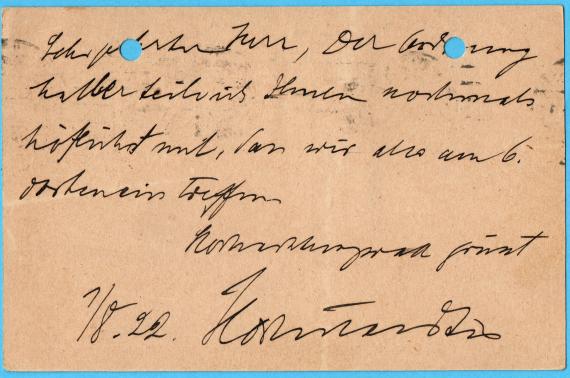 Sehr geehrter Herr, Der Ordnung
halber teile ich Ihnen nochmals
höflichst mit, dass wir also am 6.
dorten eintreffen
Hochachtungsvoll grüsst
7/8.22.